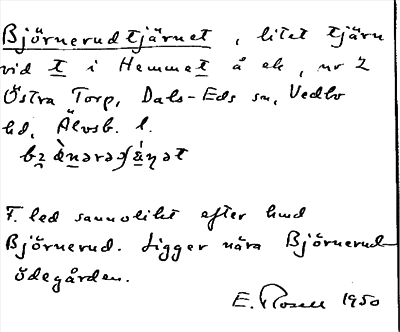 Björnerudtjärnet, litet tjärn
vid t i Hemmet å ek, nr 2
Östra Torp, Dals-Eds sn, Vedbo
hd, Älvsb. l.
F. led sannolikt efter hmd
Björnerud. Ligger nära Björnerud
ödegården.
E. Rosell 1950